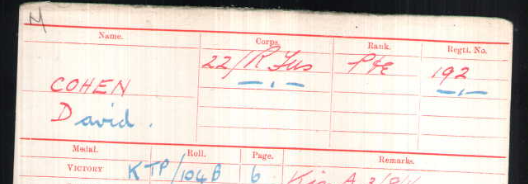 M
Name. Corps. Rank. Regtl. No.
22/R Fus Pte 192
COHEN — " — — " —
David.
Medal. Roll. Page. Remarks.
VICTORY KTP/104B 6 Kia A